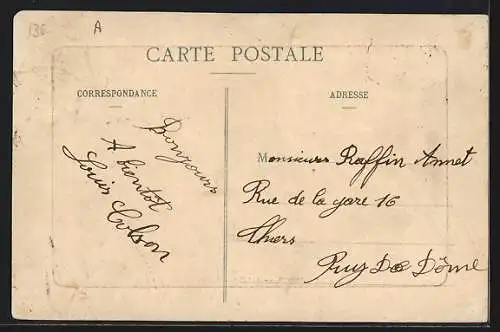 136
A
CARTE POSTALE
CORRESPONDANCE
Bonjours
A bientot
Louis Colson
ADRESSE
Monsieur Raffin Annet
Rue de la gare 16
Thiers
Puy De Dôme